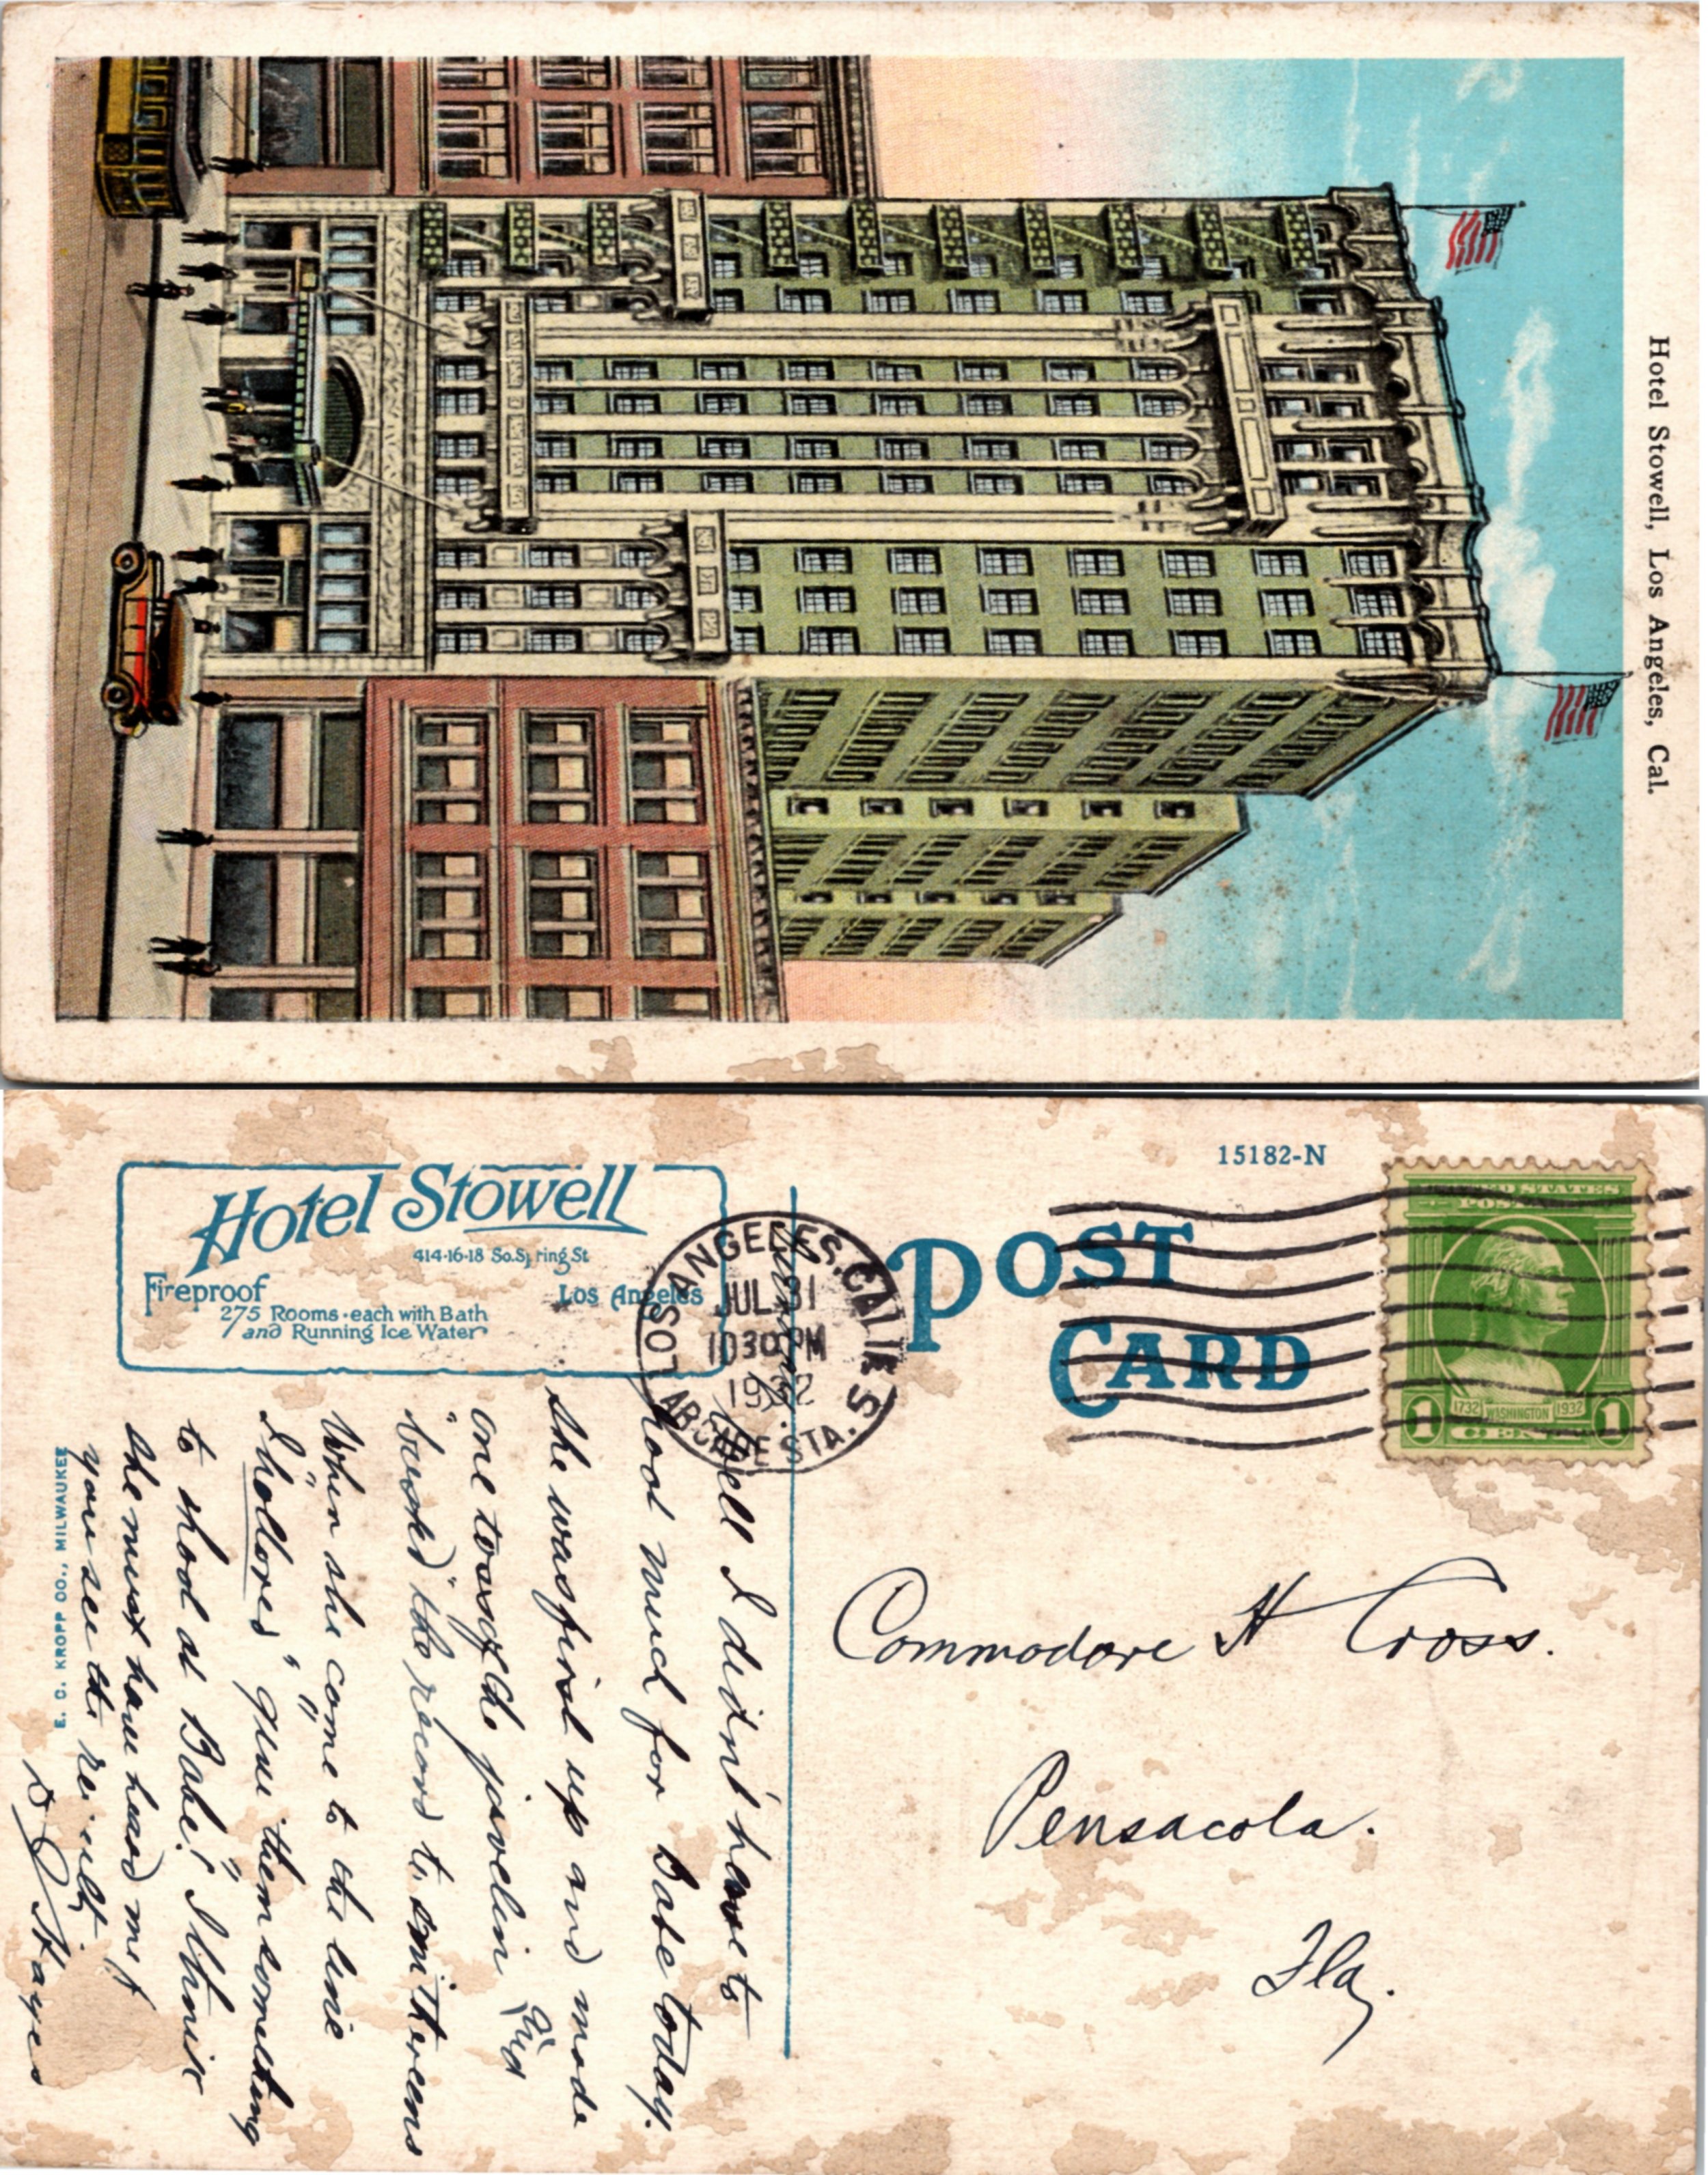 Hotel Stowell, Los Angeles, Cal.
15182-N
Hotel Stowell
414-16-18 So. Spring St
Fireproof
Los Angeles
275 Rooms - each with Bath
and Running Ice Water
POST
CARD
LOS ANGELES, CALIF.
JUL 31
10 30 PM
1932
ARCADE STA.
5
UNITED STATES
POSTAGE
1732 WASHINGTON 1932
1 CENT 1
Sunday.
Well I didn't have to
hool much for Babe today.
she was first up and made
one toss of the javelin and
"busted" the record to smithereens
When she came to the line
I "hollored" "give them something
to shool at Babe!" I think
she must have heard me if
you see the result.
Hayes
Commodore H Cross.
Pensacola.
Fla.
E. C. KROPP CO., MILWAUKEE